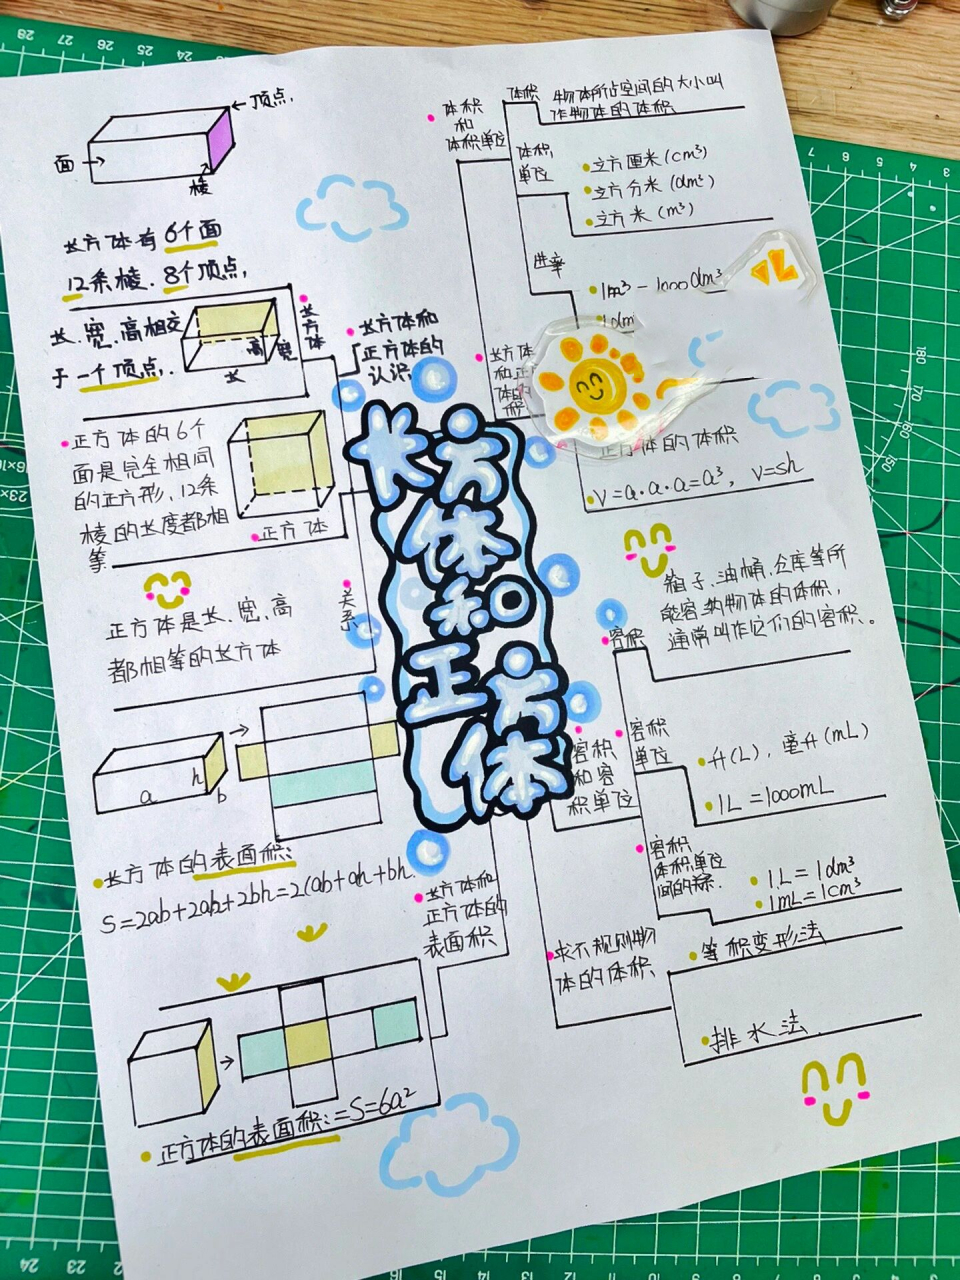 长方体和正方体
顶点
面
棱
长方体有6个面
12条棱、8个顶点,
长、宽、高相交
于一个顶点.
高
宽
长
长方体
长方体和
正方体的
认识
正方体的6个
面是完全相同
的正方形,12条
棱的长度都相
等
正方体
正方体是长、宽、高
都相等的长方体
关系
a
h
b
长方体的表面积:
S=2ab+2ah+2bh=2(ab+ah+bh
长方体和
正方体的
表面积
正方体的表面积:=S=6a²
体积
和
体积单位
体积
物体所占空间的大小叫
作物体的体积
体积
单位
立方厘米(cm³)
立方分米(dm³)
立方米(m³)
进率
1m³-1000dm³
1dm
长方体
和正
体的
积
正方体的体积
V=a·a·a=a³, V=sh
容积
和容
积单位
容积
箱子、油桶、仓库等所
能容纳物体的体积,
通常叫作它们的容积。
容积
单位
升(L), 毫升(mL)
1L=1000mL
容积
体积单位
间的
1L=1dm³
1mL=1cm³
求不规则物
体的体积
等积变形法
排水法
28 27 26 25 24
7 6 5 4 3
180
170
160
150
24 23 22